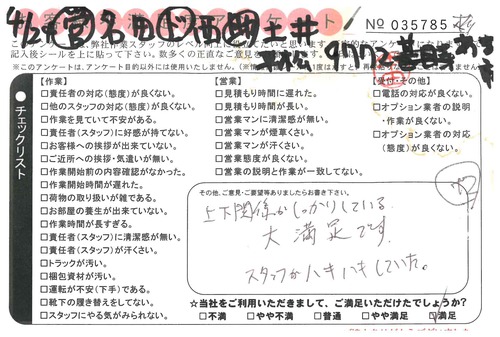 No 035785
4/2
このアンケートは、弊社作業スタッフのレベル向上に
記入後シールを上に貼って下さい。数多くの正直な
※このアンケートは、アンケート目的以外には使用いたしません。
チェックリスト
【作業】
□責任者の対応(態度)が良くない。
□他のスタッフの対応(態度)が良くない。
□作業を見ていて不安がある。
□責任者(スタッフ)に好感が持てない。
□お客様への挨拶が出来ていない。
□ご近所への挨拶・気遣いが無い。
□作業開始前の内容確認がなかった。
□作業開始時間が遅れた。
□荷物の取り扱いが雑である。
□お部屋の養生が出来ていない。
□作業時間が長すぎる。
□責任者(スタッフ)に清潔感が無い。
□責任者(スタッフ)が汗くさい。
□トラックが汚い。
□梱包資材が汚い。
□運転が不安(下手)である。
□靴下の履き替えをしてない。
□スタッフにやる気がみられない。
【営業】
□見積もり時間に遅れた。
□見積もり時間が長い。
□営業マンに清潔感が無い。
□営業マンが煙草くさい。
□営業マンが汗くさい。
□営業態度が良くない。
□営業の説明と作業が一致してない。
【受付・その他】
□電話の対応が良くない。
□オプション業者の説明
・作業が良くない。
□オプション業者の対応
(態度)が良くない。
その他、ご意見・ご要望等ありましたらお書き下さい。
上下関係がしっかりしている。
大満足です。
スタッフがハキハキしていた。
☆当社をご利用いただきまして、ご満足いただけたでしょうか?
□不満 □やや不満 □普通 □やや満足 □満足